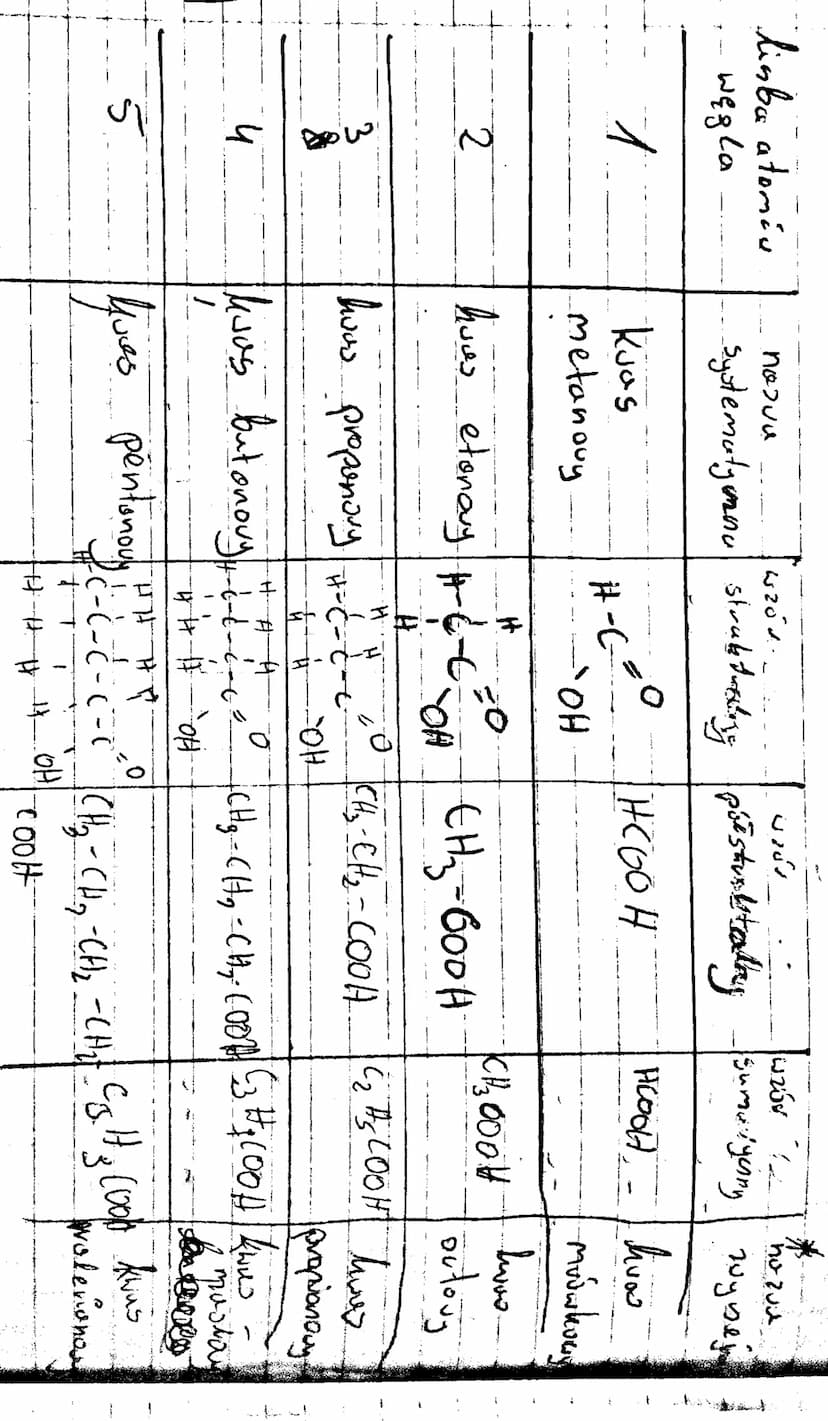 liczba atomów węgla
nazwa systematyczna
wzór strukturalny
wzór półstrukturalny
wzór sumaryczny
* nazwa zwycz.
1
kwas metanowy
H-C=O
OH
HCOOH
HCOOH
kwas mrówkowy
2
kwas etanowy
H
H-C-C=O
H
OH
CH3-COOH
CH3OOH
kwas octowy
3
kwas propanowy
H H
H-C-C-C=O
H H
OH
CH3-CH2-COOH
C2H5COOH
kwas propionowy
4
kwas butanowy
H H H
H-C-C-C-C=O
H H H
OH
CH3-CH2-CH2-COOH
C3H7COOH
kwas -
5
kwas pentanowy
H H H
H-C-C-C-C-C=O
H H H H
OH
CH3-CH2-CH2-CH2-
COOH
kwas